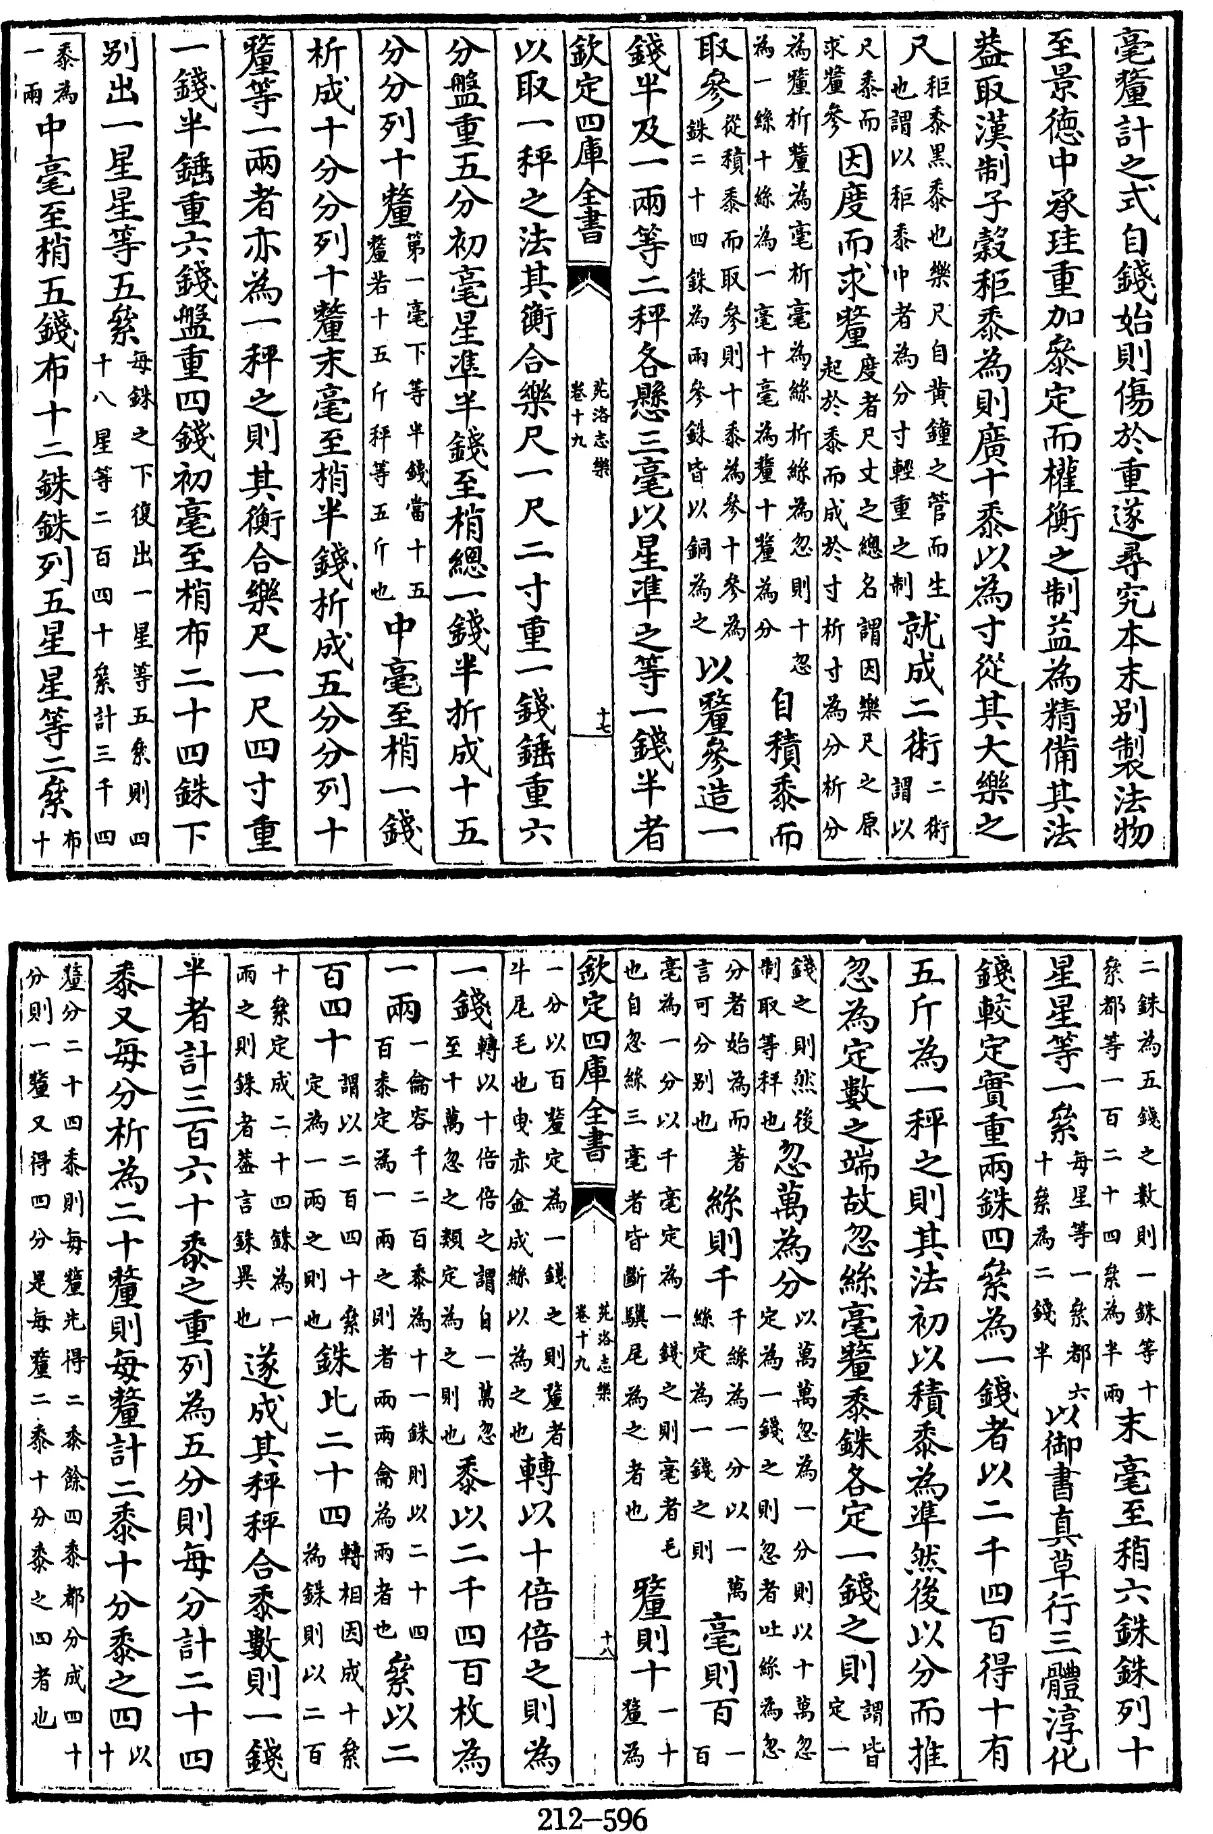 毫釐計之式自錢始則傷於重遂尋究本末別製法物
至景德中承珪重加參定而權衡之制益為精備其法
葢取漢制子穀秬黍為則廣十黍以為寸從其大樂之
尺秬黍黑黍也樂尺自黄鐘之管而生也謂以秬黍中者為分寸輕重之制就成二術二術謂以
尺黍而求釐參因度而求釐度者尺丈之總名謂因樂尺之原起於黍而成於寸析寸為分析分
為釐析釐為毫析毫為絲析絲為忽則十忽為一絲十絲為一毫十毫為釐十釐為分自積黍而
取參從積黍而取參則十黍為參十參為銖二十四銖為兩參銖皆以銅為之以釐參造一
錢半及一兩等二秤各懸三毫以星準之等一錢半者
欽定四庫全書 苑洛志樂 卷十九 十七
以取一秤之法其衡合樂尺一尺二寸重一錢錘重六
分盤重五分初毫星準半錢至梢總一錢半折成十五
分分列十釐第一毫下等半錢當十五釐若十五斤秤等五斤也中毫至梢一錢
析成十分分列十釐末毫至梢半錢析成五分分列十
釐等一兩者亦為一秤之則其衡合樂尺一尺四寸重
一錢半錘重六錢盤重四錢初毫至梢布二十四銖下
別出一星星等五絫每銖之下復出一星等五絫則四十八星等二百四十絫計三千四
黍為一兩中毫至梢五錢布十二銖銖列五星星等二絫布十
二銖為五錢之數則一銖等十絫都等一百二十四絫為半兩末毫至稍六銖銖列十
星星等一絫每星等一絫都六十絫為二錢半以御書真草行三體淳化
錢較定實重兩銖四絫為一錢者以二千四百得十有
五斤為一秤之則其法初以積黍為準然後以分而推
忽為定數之端故忽絲毫釐黍銖各定一錢之則謂皆定一
錢之則然後制取等秤也忽萬為分以萬萬忽為一分則以十萬忽定為一錢之則忽者吐絲為忽
分者始為而著言可分別也絲則千千絲為一分以一萬絲定為一錢之則毫則百一百
毫為一分以千毫定為一錢之則毫者毛也自忽絲三毫者皆斷驥尾為之者也釐則十一十釐為
欽定四庫全書 苑洛志樂 卷十九 十八
一分以百釐定為一錢之則釐者斗尾毛也曳赤金成絲以為之也轉以十倍倍之則為
一錢轉以十倍倍之謂自一萬忽至十萬忽之類定為之則也黍以二千四百枚為
一兩一龠容千二百黍為十一銖則以二十四百黍定為一兩之則者兩兩龠為兩者也絫以二
百四十謂以二百四十絫定為一兩之則也銖比二十四轉相因成十絫為銖則以二百
十絫定成二十四銖為一兩之則銖者葢言銖異也遂成其秤秤合黍數則一錢
半者計三百六十黍之重列為五分則每分計二十四
黍又每分析為二十釐則每釐計二黍十分黍之四以十
釐分二十四黍則每釐先得二黍餘四黍都分成四十分則一釐又得四分是每釐二黍十分黍之四者也
212-596